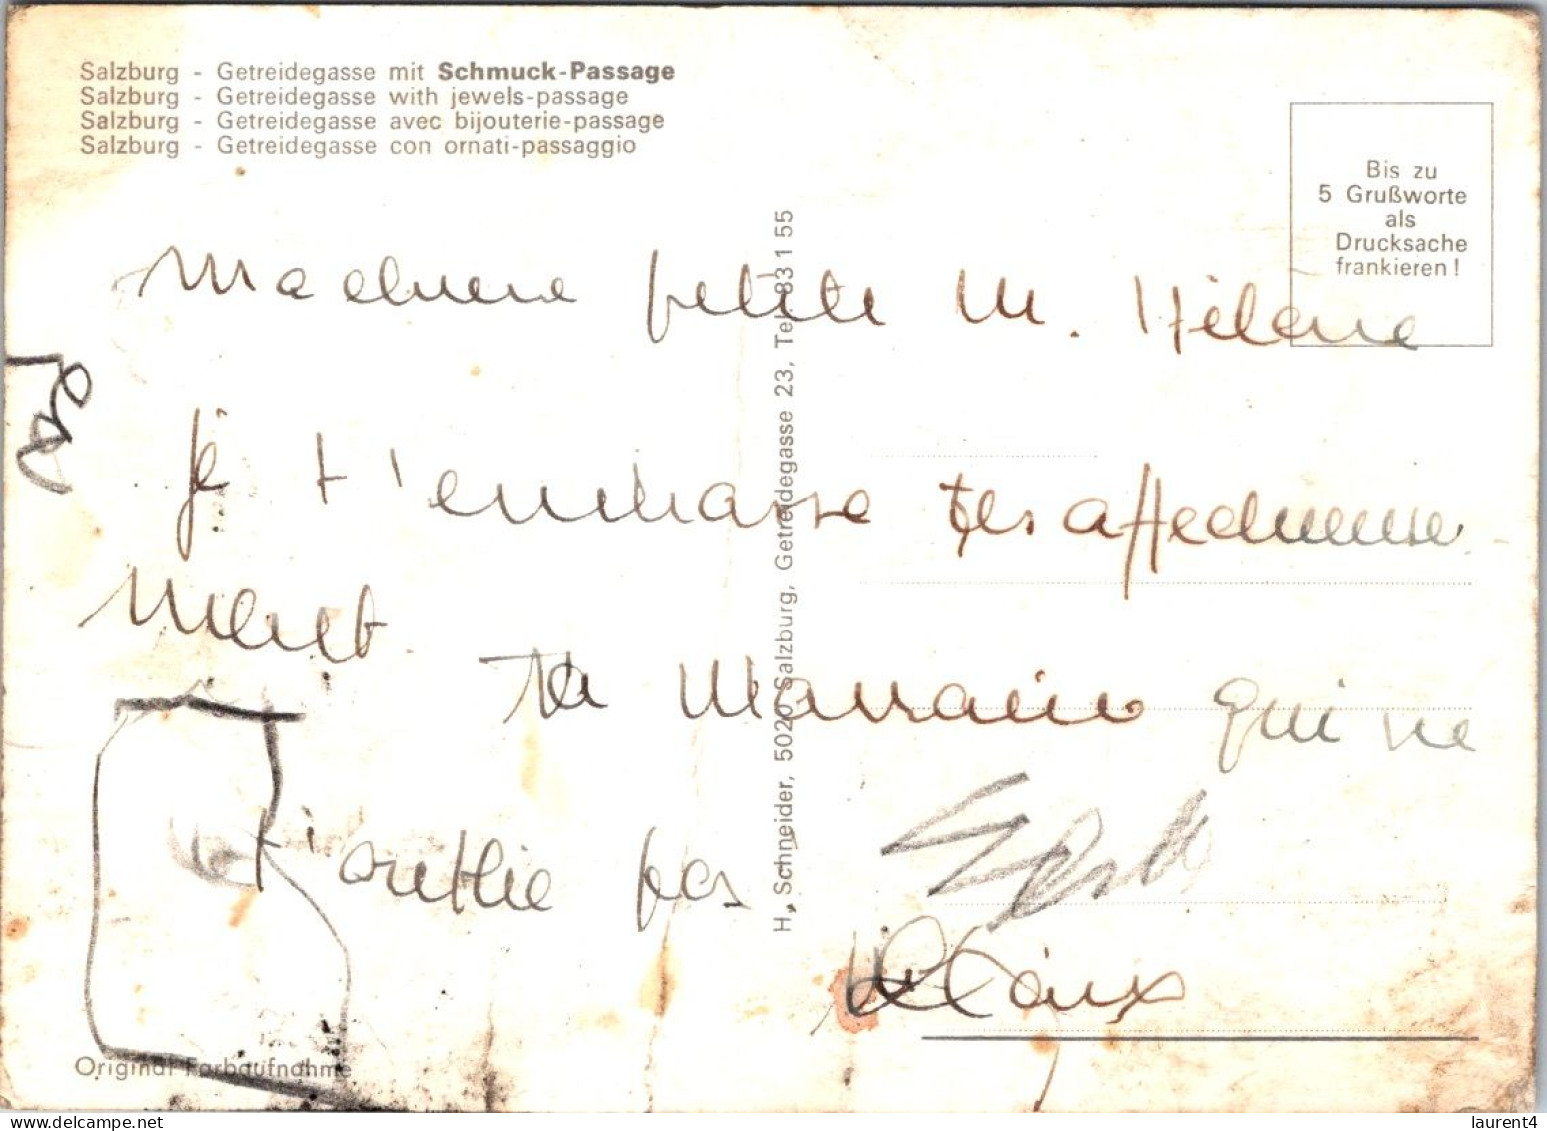 Salzburg - Getreidegasse mit Schmuck-Passage
Salzburg - Getreidegasse with jewels-passage
Salzburg - Getreidegasse avec bijouterie-passage
Salzburg - Getreidegasse con ornati-passaggio
Bis zu
5 Grußworte
als
Drucksache
frankieren!
Ma chere petite M. Hélène
Je t t'embrasse tres affectueuse
ment. Ta Marraine qui ne
t'oublie pas
H. Schneider, 5020 Salzburg, Getreidegasse 23, Tel. 83 1 55
Original Farbaufnahme
delcampe.net
laurent4